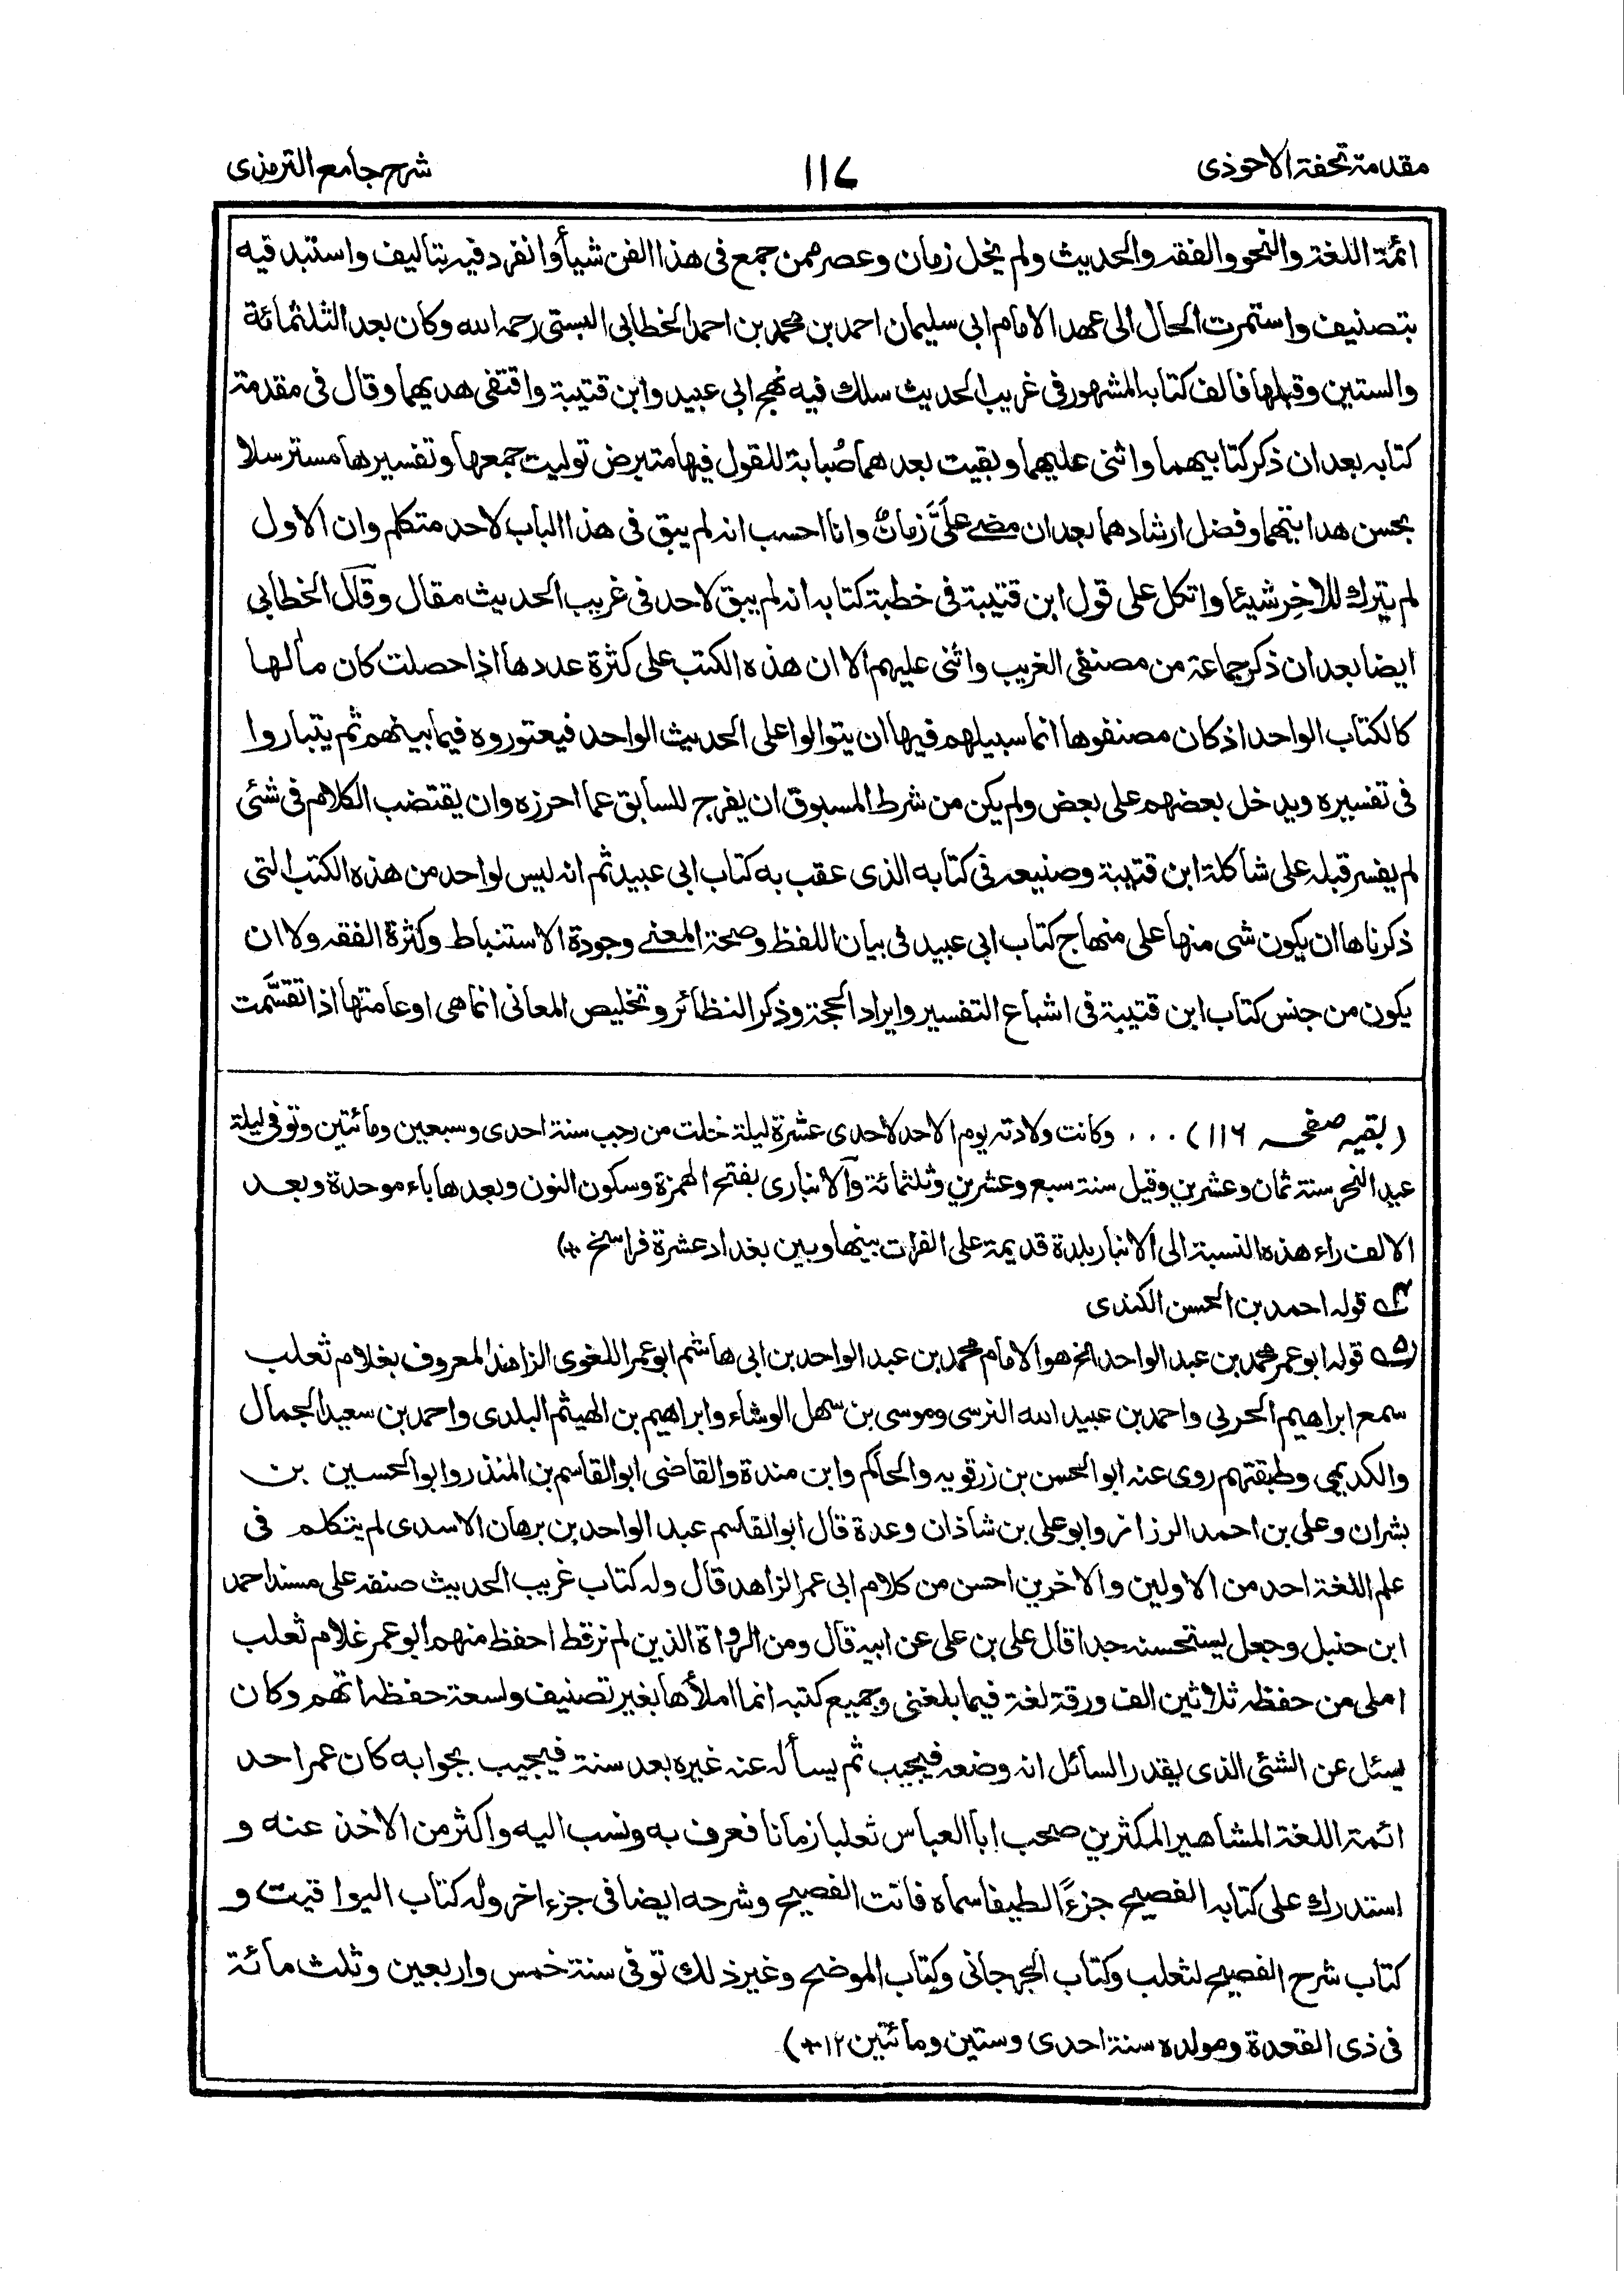 مقدمة تحفة الاحوذى
١١٧
شرح جامع الترمذى
ائمة اللغة والنحو والفقه والحديث ولم يخل زمان وعصر ممن جمع فى هذا الفن شيأ وانفرد فيه بتاليف واستبد فيه
بتصنيف واستمرت الحال الى عهد الامام ابى سليمان احمد بن محمد بن احمد الخطابى البستى رحمه الله وكان بعد الثلثمائة
والستين وقبلها فالف كتابه المشهور فى غريب الحديث سلك فيه نهج ابى عبيد وابن قتيبة واقتفى هديهما وقال فى مقدمة
كتابه بعد ان ذكر كتابيهما واثنى عليهما وبقيت بعدهما صُبابة للقول فيها متبرض توليت جمعها وتفسيرها مسترسلا
بحسن هدايتهما وفضل ارشادهما بعد ان مضى علىَّ زمانٌ وانا احسب انه لم يبق فى هذا الباب لاحد متكلم وان الاول
لم يترك للاخِر شيئا واتكل على قول ابن قتيبة فى خطبة كتابه انه لم يبق لاحد فى غريب الحديث مقال وقال الخطابى
ايضا بعد ان ذكر جماعة من مصنفى الغريب واثنى عليهم الا ان هذه الكتب على كثرة عددها اذا حصلت كان مآلها
كالكتاب الواحد اذ كان مصنفوها انما سبيلهم فيها ان يتوالوا على الحديث الواحد فيعتوروه فيما بينهم ثم يتباروا
فى تفسيره ويدخل بعضهم على بعض ولم يكن من شرط المسبوق ان يفرج للسابق عما احرزه وان يقتضب الكلام فى شئى
لم يفسر قبله على شاكلة ابن قتيبة وصنيعه فى كتابه الذى عقب به كتاب ابى عبيد ثم انه ليس لواحد من هذه الكتب التى
ذكرناها ان يكون شى منها على منهاج كتاب ابى عبيد فى بيان اللفظ وصحة المعنى وجودة الاستنباط وكثرة الفقه ولا ان
يكون من جنس كتاب ابن قتيبة فى اشباع التفسير وايراد الحجة وذكر النظائر وتخليص المعانى انما هى او عامتها اذا تقسّمت
(بقيه صفحه ١١٦) ... وكانت ولادته يوم الاحد لاحدى عشرة ليلة خلت من رجب سنة احدى وسبعين ومائتين وتوفى ليلة
عيد النحر سنة ثمان وعشرين وقيل سنة سبع وعشرين وثلثمائة والانبارى بفتح الهمزة وسكون النون وبعدها باء موحدة وبعد
الالف راء هذه النسبة الى الانبار بلدة قديمة على الفرات بينها وبين بغداد عشرة فراسخ *)
ـ٤ قوله احمد بن الحسن الكندى
ـ٥ قوله ابو عمر محمد بن عبد الواحد الخ هو الامام محمد بن عبد الواحد بن ابى هاشم ابو عمر اللغوى الزاهد المعروف بغلام ثعلب
سمع ابراهيم الحربى واحمد بن عبيد الله النرسى وموسى بن سهل الوشاء وابراهيم بن الهيثم البلدى واحمد بن سعيد الجمال
والكديمى وطبقتهم روى عنه ابو الحسن بن زرقويه والحاكم وابن مندة والقاضى ابو القاسم بن المنذر وابو الحسين بن
بشران وعلى بن احمد الرزاز وابو على بن شاذان وعدة قال ابو القاسم عبد الواحد بن برهان الاسدى لم يتكلم فى
علم اللغة احد من الاولين والاخرين احسن من كلام ابى عمر الزاهد قال وله كتاب غريب الحديث صنفه على مسند احمد
ابن حنبل وجعل يستحسنه جدا قال على بن على عن ابيه قال ومن الرواة الذين لم نر قط احفظ منهم ابو عمر غلام ثعلب
املى من حفظه ثلاثين الف ورقة لغة فيما بلغنى وجميع كتبه انما املأها بغير تصنيف ولسعة حفظه اتهم وكان
يسئل عن الشئى الذى يقدر السائل انه وضعه فيجيب ثم يسأله عنه غيره بعد سنة فيجيب بجوابه كان عمر احد
ائمة اللغة المشاهير المكثرين صحب ابا العباس ثعلبا زمانا فعرف به ونسب اليه واكثر من الاخذ عنه و
استدرك على كتابه الفصيح جزءًا لطيفا سماه فائت الفصيح وشرحه ايضا فى جزء اخر وله كتاب اليواقيت و
كتاب شرح الفصيح لثعلب وكتاب الجرجانى وكتاب الموضح وغير ذلك توفى سنة خمس واربعين وثلث مائة
فى ذى القعدة ومولده سنة احدى وستين ومائتين ١٢ *)